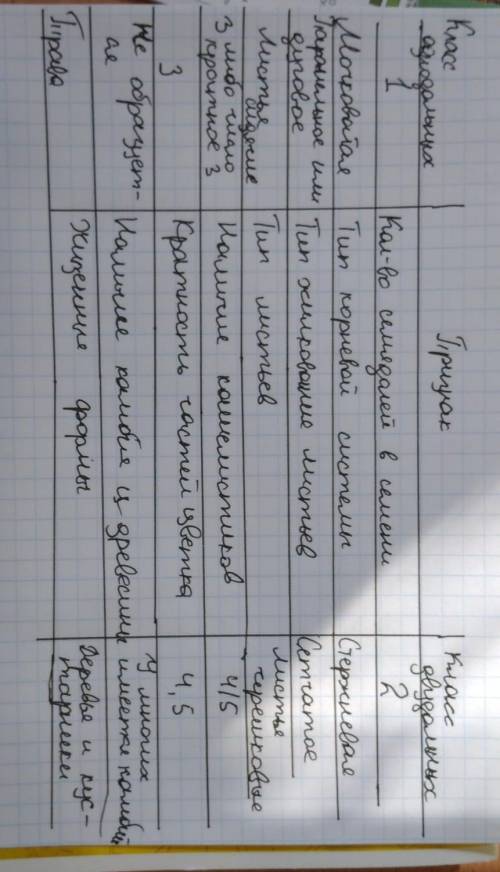 Класс
однодольных
Признак
Класс
двудольных
1
Кол-во семядолей в семени
2
Мочковатая
Тип корневой системы
Стержневая
Паралельное или
дуговое
Тип жилкования листьев
Сетчатое
Листья
сидячие
Тип листьев
Листья
черешковые
3 либо число
кратное 3
Наличие чашелистиков
4/5
3
Кратность частей цветка
4,5
Не образует-
ся
Наличие камбия и древесины
У многих
имеется камбий
Трава
Жизненные формы
Деревья и кус-
тарники